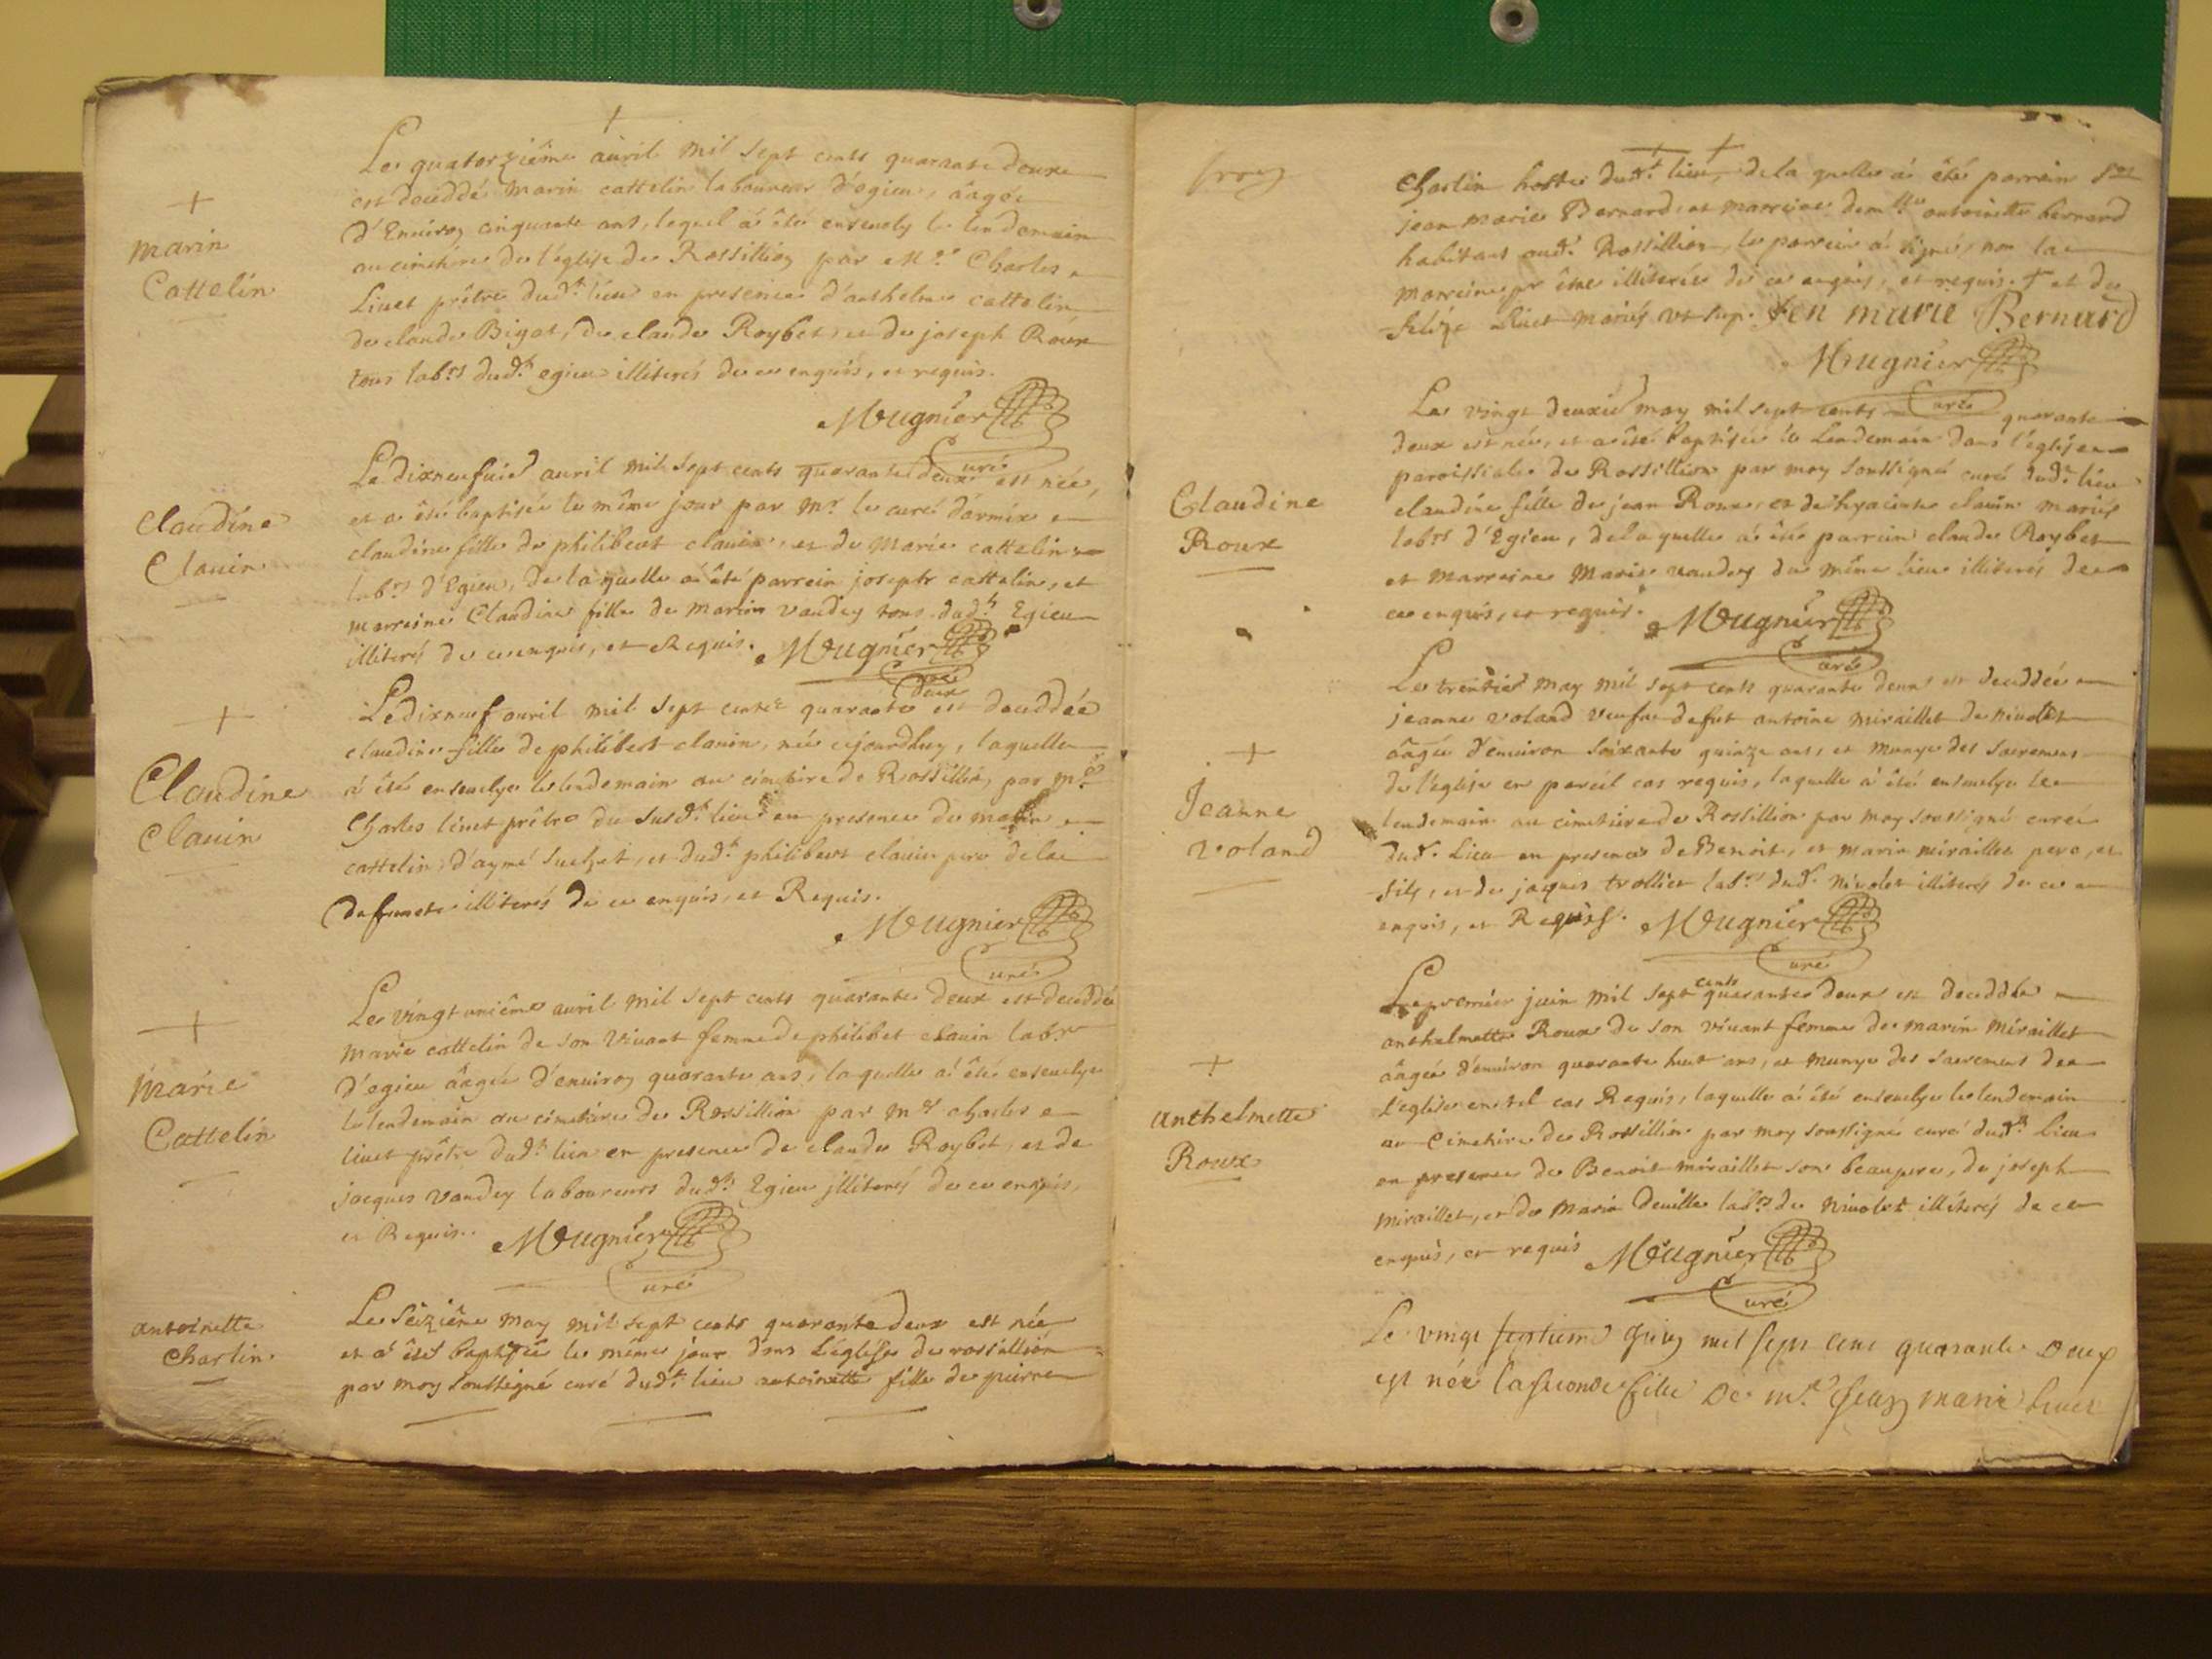 Le quatorziême auril mil sept cents quarante deux
est deceddé marin cattelin laboureur d'egieu, âagée
d'Enuiron cinquante ans, lequel á êté enseuely le lendemain
au cimitiére de l'église de Rossillion par Mre Charles
Liuet prêtre dudt lieu en presence d'anthelme cattelin
de claude Bigot, de claude Roybet, et de joseph Roux
tous labrs dudt egieu illiterés de ce enquis, et requis.
Mugnier
curé
marin
Cattelin
Le dixneufuiê auril mil sept cents quarante deux est née,
et a êté baptisée le même jour par mr le curé d'armix
claudine fille de philibert clauin, et de Marie cattelin
labrs d'Egieu, de laquelle a êté parrein joseph cattelin, et
marreine Claudine fille de marin vaudey tous dudt Egieu
illiterés de ce enquis, et Requis. Mugnier
curé
Claudine
Clauin
Le dixneuf auril mil sept cents quarante deux est deceddée
claudine fille de philibert clauin, née cejourdhuy, laquelle
á êté enseuelye le lendemain au cimitiere de Rossillion, par mre
Charles liuet prêtre du susdt lieu en presence de marin
cattelin, d'aymé suchet, et dudt philibert clauin pere de la
defunete illiterés de ce enquis, et Requis.
Mugnier
curé
Claudine
Clauin
Le vingt uniême auril mil sept cents quarante deux est deceddée
marie cattelin de son viuant femme de philibet clauin labr
d'egieu âagée d'enuiron quarante ans, laquelle a êté enseuelye
le lendemain au cimitiére de Rossillion par mre charles
liuet prêtre dudt lieu en presence de claude Roybet, et de
jacques vaudey laboureurs dudt Egieu jlliterés de ce enquis,
et Requis. Mugnier
curé
marie
Cattelin
Le seiziême may mil sept cents quarante deux est née
et a êté baptisée le même jour dans l'église de rossillion
par moy soussigné curé dudt lieu antoinette fille de pierre
antoinette
charlin
Charlin hoste dudt lieu, de la quelle á êté parrein sr
jean marie Bernard, et marreine demlle antoinette bernard
habitans audt Rossillion, le parrein á signé, non la
marreine pr être illiterée de ce enquis, et requis. + et de
Liuet mariés vt sup. Jen marie Bernard
Mugnier
curé
Le vingt deuxiê may mil sept cents quarante
deux est née, et a êté baptisée le lendemain dans l'église
paroissiale de Rossillion par moy soussigné curé dudt lieu
claudine fille de jean Roux, et de hyacinte clauin mariés
labrs d'Egieu, de laquelle á êté parrein claude Roybet
et marreine Marie vaudey du même lieu illiterés de
ce enquis, et requis. Mugnier
curé
Claudine
Roux
Le trentiê may mil sept cents quarante deux est deceddée
jeanne voland veufue de fut antoine miraillet de niuolet
âagée d'enuiron soixante quinze ans, et munye des sacremens
de l'église en pareil cas requis, laquelle á êté enseuelye le
lendemain au cimitiere de Rossillion par moy soussigné curé
dudt Lieu en presence de Benoit, et marin miraillet pere, et
fils, et de jaques trollier labrs dudt Niuolet illiterés de ce
enquis, et Requis. Mugnier
curé
Jeanne
voland
Le premier juin mil sept cents quarante deux est deceddée
anthelmette Roux de son viuant femme de marin miraillet
âagée d'enuiron quarante huit ans, et munye des sacremens de
l'église en tel cas Requis, laquelle á êté enseuelye le lendemain
au cimitiere de Rossillion par moy soussigné curé dudt lieu
en presence de Benoit miraillet son beaupere, de joseph
miraillet, et de marin deuille labrs de niuolet illiterés de ce
enquis, et requis Mugnier
curé
anthelmette
Roux
Le vingt septieme Juin mil sept cent quarante deux
est née la seconde fille de mr Jean marie liuet